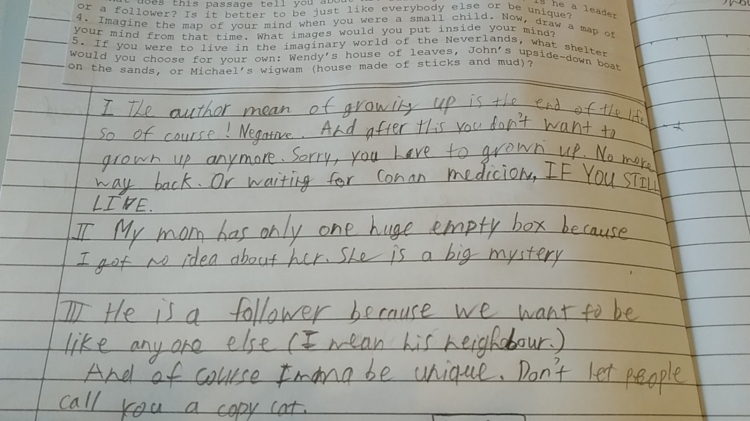 does this passage tell you about is he a leader
or a follower? Is it better to be just like everybody else or be unique?
4. Imagine the map of your mind when you were a small child. Now, draw a map of
your mind from that time. What images would you put inside your mind?
5. If you were to live in the imaginary world of the Neverlands, what shelter
would you choose for your own: Wendy's house of leaves, John's upside-down boat
on the sands, or Michael's wigwam (house made of sticks and mud)?
I The author mean of growing up is the end of the life
so of course! Negative. And after this you don't want to
grown up anymore. Sorry, you have to grown up. No more
way back. Or waiting for Conan medicion, IF YOU STILL
LIVE.
II My mom has only one huge empty box because
I got no idea about her. She is a big mystery
III He is a follower because we want to be
like anyone else (I mean his neighdbour.)
And of course Imma be unique. Don't let people
call you a copy cat.